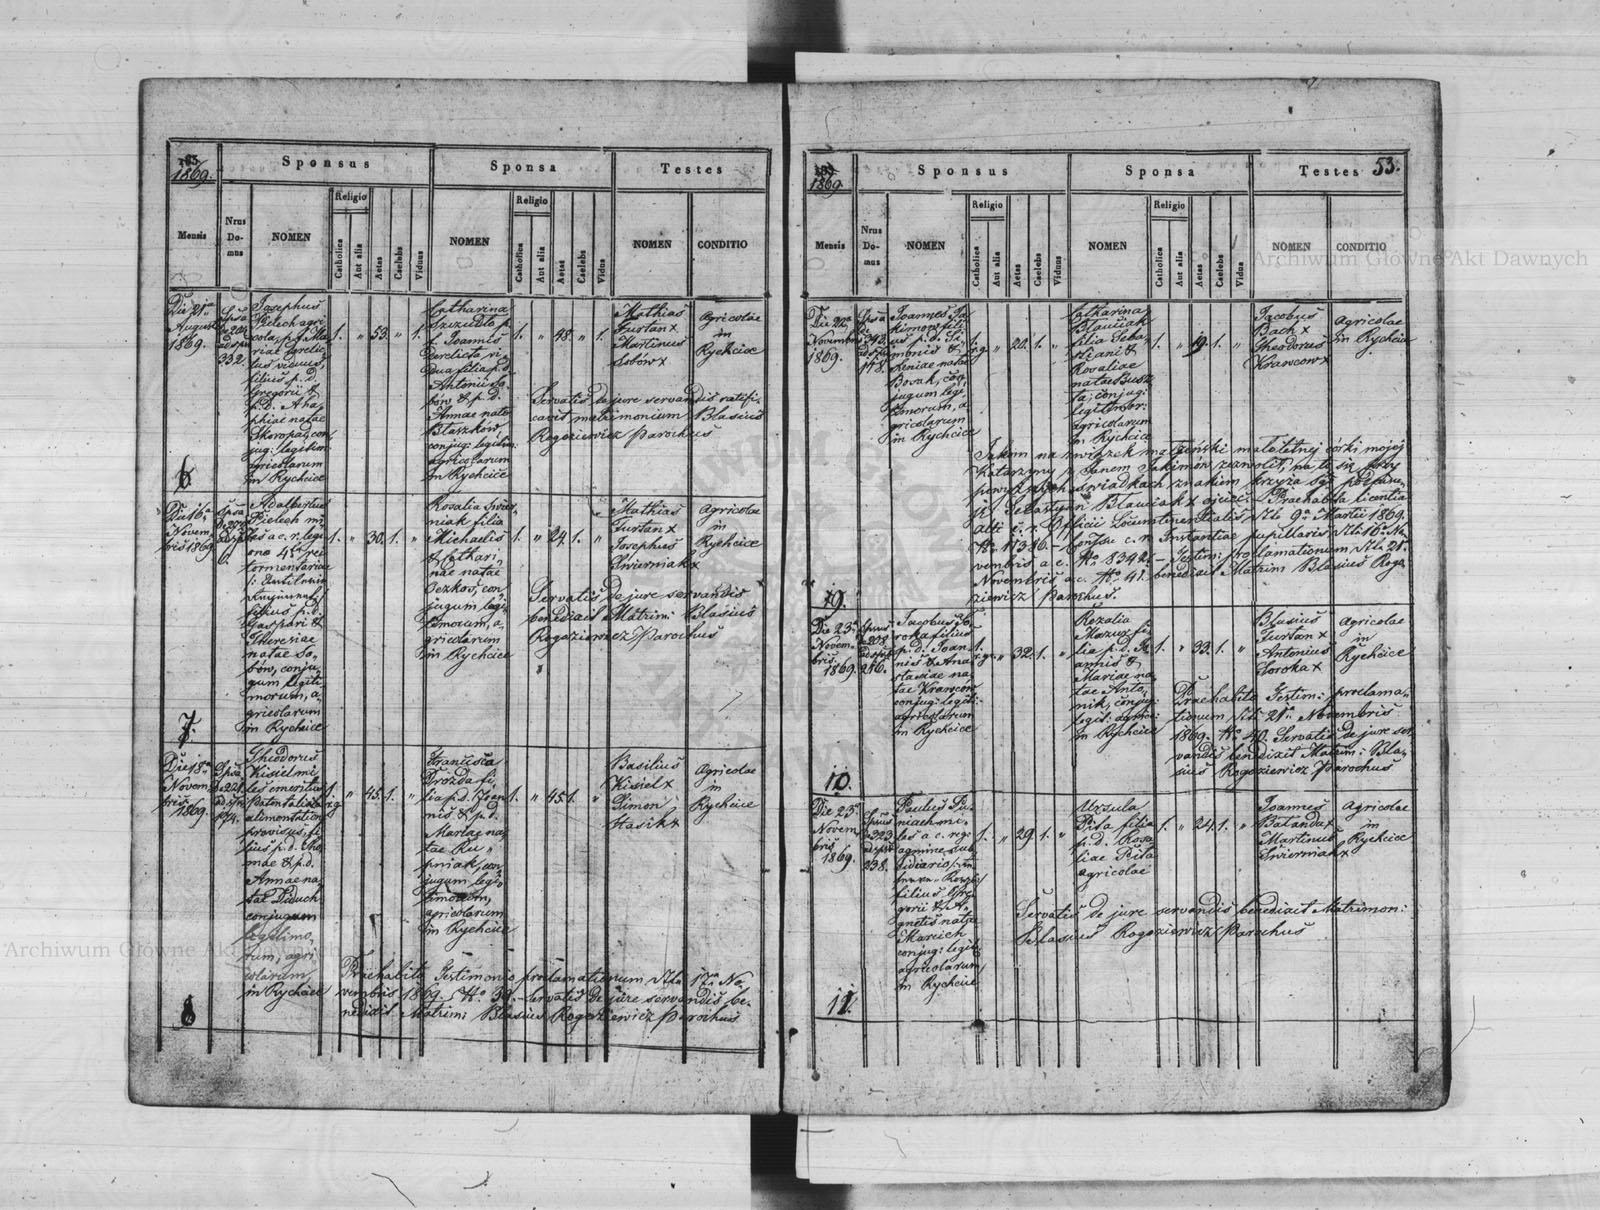 1869.
Sponsus
Sponsa
Testes
Mensis
Nrus Do-mus
NOMEN
Religio
Catholica
Aut alia
Aetas
Caelebs
Viduus
NOMEN
Religio
Catholica
Aut alia
Aetas
Caelebs
Vidua
NOMEN
CONDITIO
Die 21a
Augusti
1869.
6
Josephus
Pielech agri
cola, p.d. Ma
riae derelic
tus viduus,
filius p.d.
Gregorii &
p.d. Aha
phiae natae
Skoropad, con
jug: legitim:
agricolarum
in Rychcice
1. " 53. " 1.
Catharina
derelicta vi
dua filia p.d.
Antonii So
bów, & p.d.
Annae nata
Blaszków,
conjug: legitim:
agricolarum
in Rychcice
1. " 48. " 1.
Mathias
Furtan x
Martinus
Sobów x
Agricolae
in
Rychcice
Servatis de jure servandis ratifi
cavit matrimonium Blasius
Rogoziewicz Parochus
Die 16a
Novem
bris 1869
7.
Adalbertus
Pielech mi
les a c. r. legi
one
filius p.d.
Gaspari &
Theresiae
natae So
bów, conju
gum legiti
morum, a
gricolarum
in Rychcice
1. " 30. 1. "
Rosalia Świer
niak filia
Michaelis
& Cathari
nae natae
con
jugum legi
timorum, a
gricolarum
in Rychcice
1. " 24. 1. "
Mathias
Furtan x
Josephus
Świerniak x
Agricolae
in
Rychcice
Servatis de jure servandis
benedixit Matrim: Blasius
Rogoziewicz Parochus
Die 18a
Novem
bris
1869.
8
Theodorus
Kisiel mi
les emeritus
Patentalis
alimentation
provisus, fi
lius p.d. Tho
mae & p.d.
Annae na
tae Diduch
conjugum
legitimo
rum, agri
colarum
in Rychcice
1. r.g " 45. 1. "
Francisca
Drozda fi
lia p.d. Joan
nis & p.d.
Mariae na
tae Ru
pniak, con
jugum legi
timorum,
agricolarum
in Rychcice
1. " 45. 1. "
Basilius
Kisiel x
Simon
Stasik x
Agricolae
in
Rychcice
Praehabito Testimonio proclamationum dto 17a No
vembris 1869. No 39. Servatis de jure servandis be
nedixit Matrim: Blasius Rogoziewicz Parochus
1869.
Sponsus
Sponsa
Testes
53.
Mensis
Nrus Do-mus
NOMEN
Religio
Catholica
Aut alia
Aetas
Caelebs
Viduus
NOMEN
Religio
Catholica
Aut alia
Aetas
Caelebs
Vidua
NOMEN
CONDITIO
Die 22a
Novembris
1869.
9.
Joannes Ja
kimów fili
us p.d. Si
monis &
Xeniae natae
Bosak, con
jugum legi
timorum, a
gricolarum
in Rychcice
1. r.g. " 20. 1. "
Catharina
Blauciak
filia Seba
stiani &
Rosaliae
natae
conjug:
legitimor:
agricolarum
in Rychcice
1. " 19. 1. "
Jacobus
Bach x
Theodorus
Krawcow x
Agricolae
in Rychcice
Jakom na związek małżeński małoletniej córki mojej
Katarzyny z Janem Jakimów zezwolił, na to się przy
powyższych świadkach znakiem krzyża Sgo podpisu
ję. Sebastyan Blauciak x ojciec. Praehabita licentia
alti c. r. Officii Locumtenentialis dto 9a Martii 1869.
No 17386.
vembris a. c. No 8392. Testim: proclamationum dto 21a
Novembris a. c. No 41. benedixit Matrim Blasius Rogo
ziewicz Parochus.
Die 23a
Novem
bris
1869.
10.
Jacobus So
roka filius
p.d. Joan
nis & Ana
stasiae na
tae Krawców
conjug: legiti:
agricolarum
in Rychcice
1. r.g. " 32. 1. "
Rozalia
Mazur fi
lia p.d. Jo
annis &
Mariae na
tae Anto
nik, conjug:
legit: agrico:
in Rychcice
1. " 33. 1. "
Blasius
Furtan x
Antonius
Soroka x
Agricolae
in
Rychcice
Praehabito Testim: proclama
tionum dto 21a Novembris
1869. No 40. Servatis de jure ser
vandis benedixit Matrim: Bla
sius Rogoziewicz Parochus
Die 23a
Novem
bris
1869.
11.
Paulus
mi
les a c. r. reg:
filius Gre
gorii & A
gnetis natae
Marcich
conjug: legit:
agricolarum
in Rychcice
1. " 29. 1. "
Urzula
Pita filia
p.d. Rosa
liae Pita
agricolae
1. " 24. 1. "
Joannes
Batanda x
Martinus
Świerniak x
Agricolae
in
Rychcice
Servatis de jure servandis benedixit Matrimon:
Blasius Rogoziewicz Parochus
Archiwum Główne Akt Dawnych
Archiwum Główne Akt Dawnych